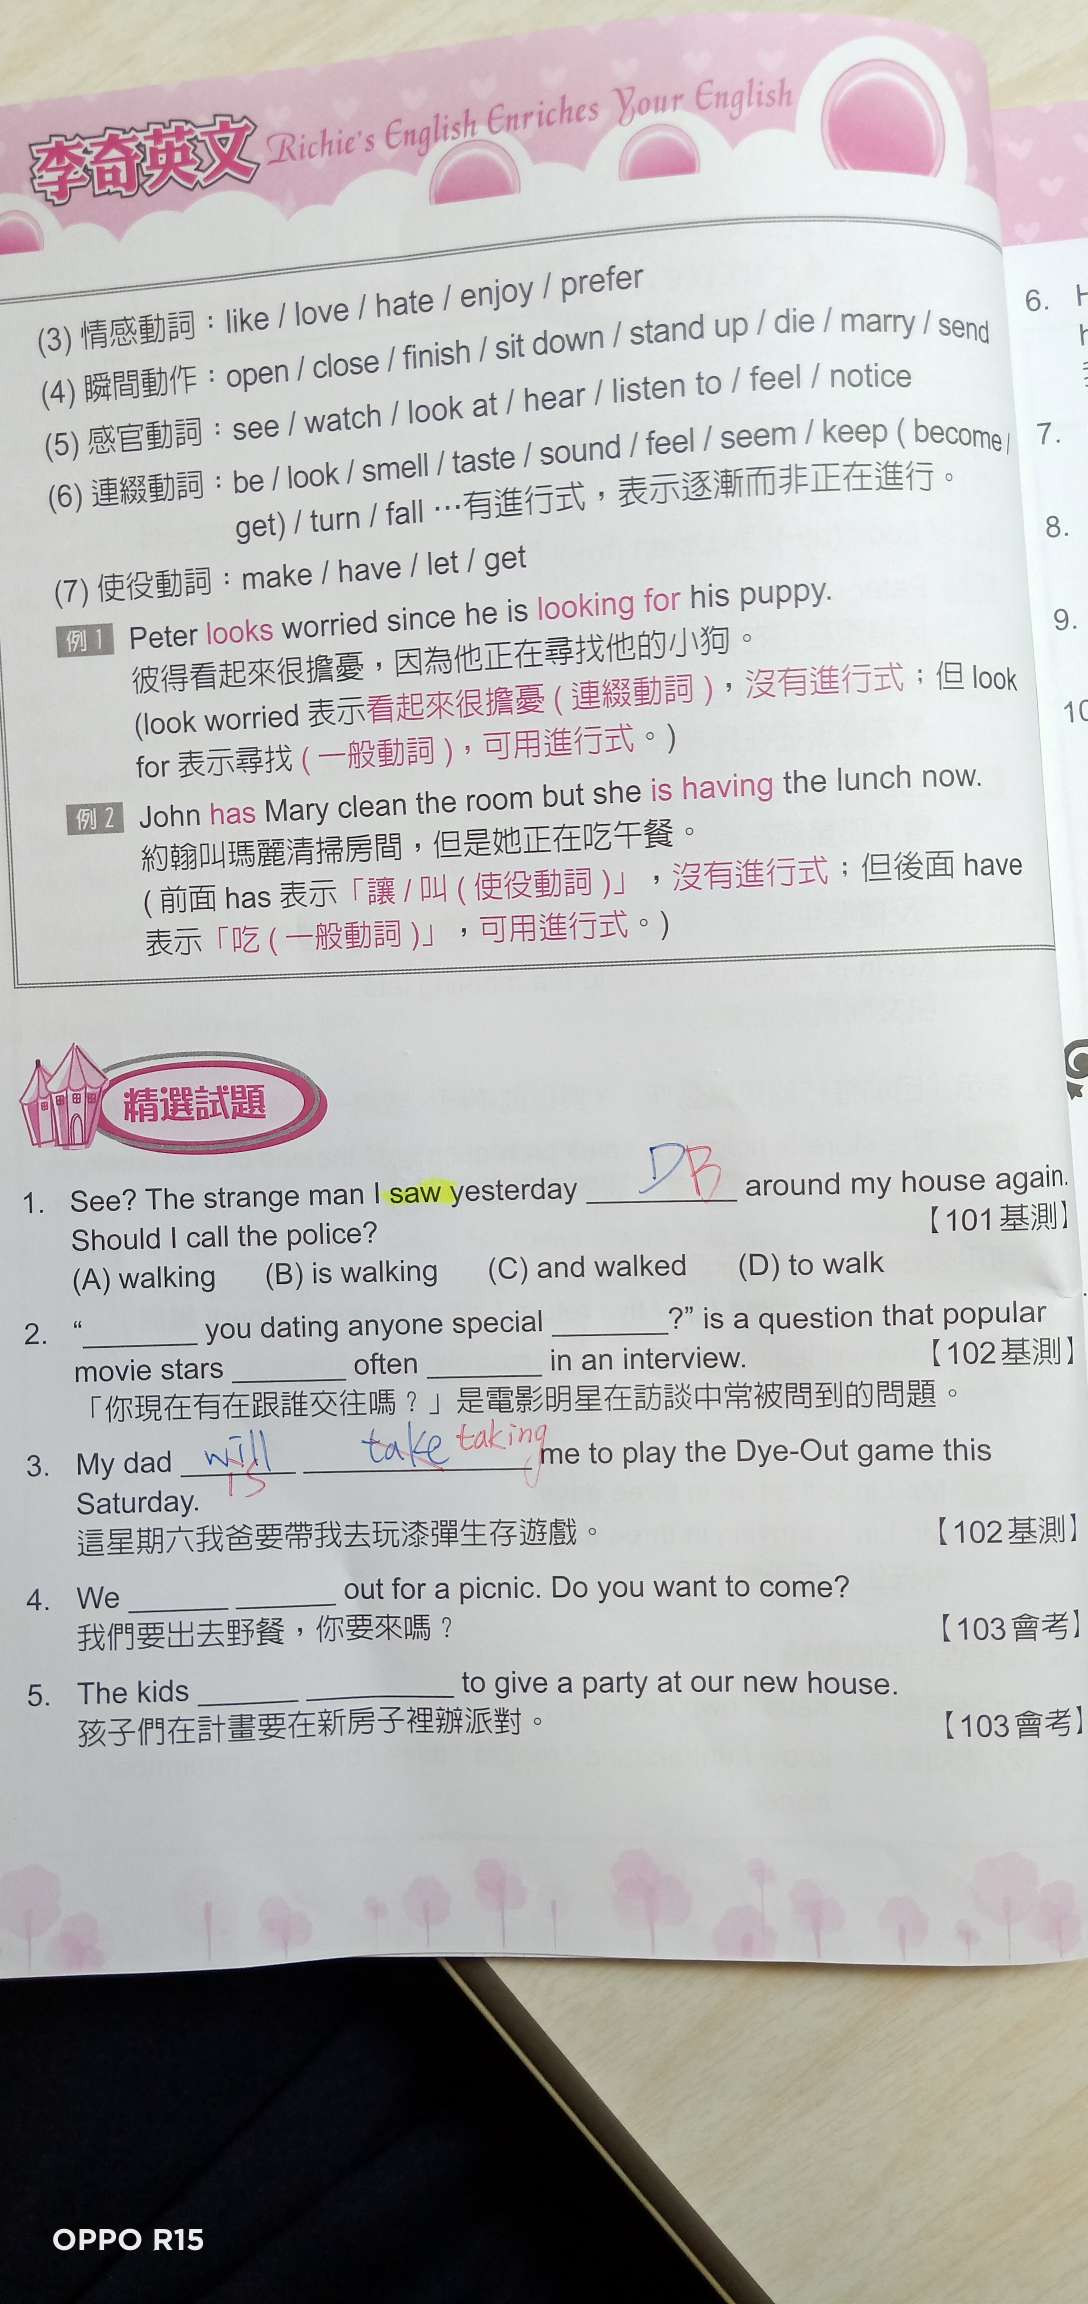 李奇英文 Richie's English Enriches Your English
(3) 情感動詞：like / love / hate / enjoy / prefer
(4) 瞬間動作：open / close / finish / sit down / stand up / die / marry / send
(5) 感官動詞：see / watch / look at / hear / listen to / feel / notice
(6) 連綴動詞：be / look / smell / taste / sound / feel / seem / keep ( become /
get) / turn / fall …有進行式，表示逐漸而非正在進行。
(7) 使役動詞：make / have / let / get
例 1 Peter looks worried since he is looking for his puppy.
彼得看起來很擔憂，因為他正在尋找他的小狗。
(look worried 表示看起來很擔憂 ( 連綴動詞 )，沒有進行式；但 look
for 表示尋找 ( 一般動詞 )，可用進行式。)
例 2 John has Mary clean the room but she is having the lunch now.
約翰叫瑪麗清掃房間，但是她正在吃午餐。
( 前面 has 表示「讓 / 叫 ( 使役動詞 )」，沒有進行式；但後面 have
表示「吃 ( 一般動詞 )」，可用進行式。)
精選試題
1. See? The strange man I saw yesterday D B around my house again.
Should I call the police? 【101基測】
(A) walking (B) is walking (C) and walked (D) to walk
2. “________ you dating anyone special ________?” is a question that popular
movie stars ________ often ________ in an interview. 【102基測】
「你現在有在跟誰交往嗎？」是電影明星在訪談中常被問到的問題。
3. My dad will is take taking me to play the Dye-Out game this
Saturday.
這星期六我爸要帶我去玩漆彈生存遊戲。 【102基測】
4. We _______ _______ out for a picnic. Do you want to come?
我們要出去野餐，你要來嗎？ 【103會考】
5. The kids _______ __________ to give a party at our new house.
孩子們在計畫要在新房子裡辦派對。 【103會考】
6.
7.
8.
9.
10
OPPO R15